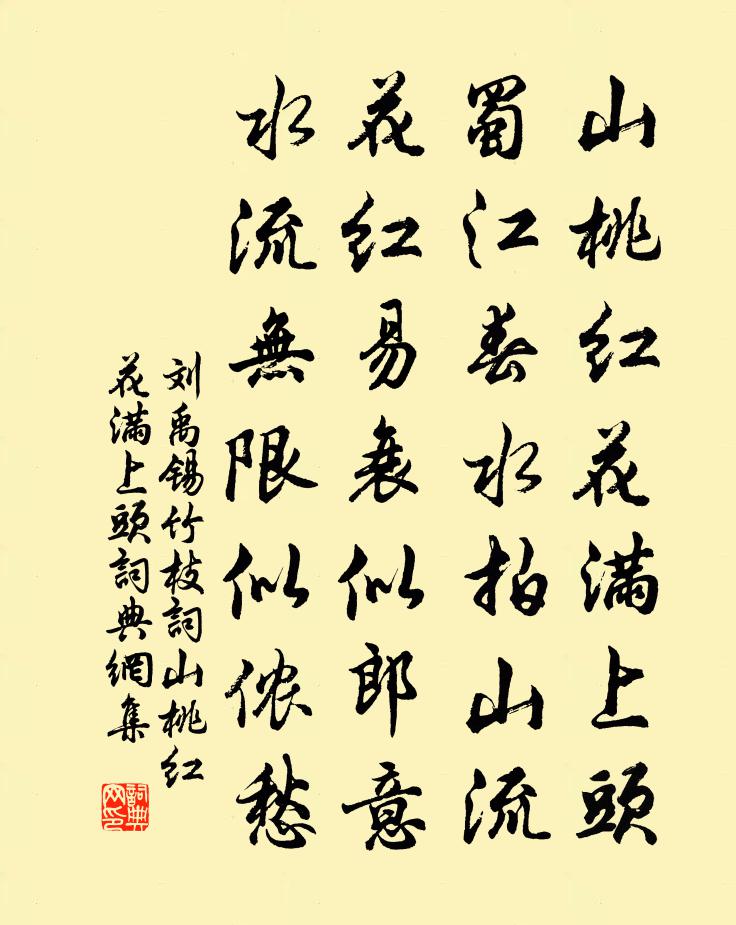 山桃红花满上頭
蜀江春水拍山流
花红易衰似郎意
水流無限似侬愁
刘禹锡竹枝詞山桃红
花满上頭詞典網集
詞典
网印